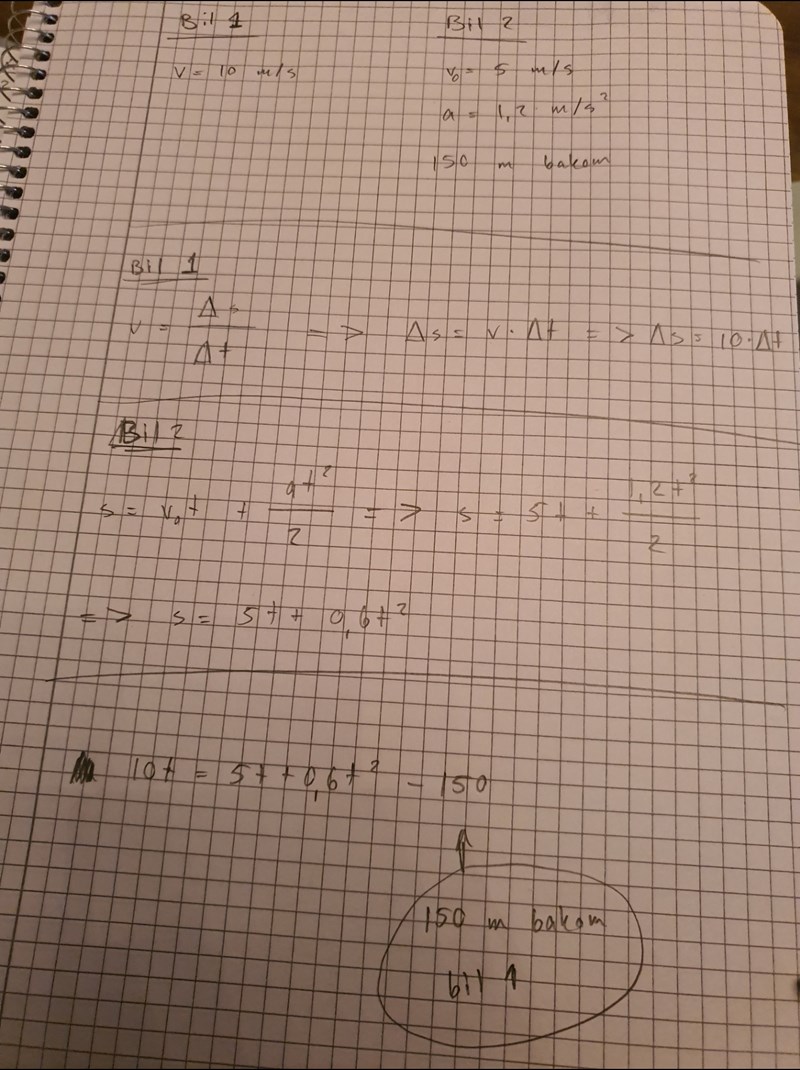 Bil 1 Bil 2
v = 10 m/s v₀ = 5 m/s
a = 1,2 m/s²
150 m bakom
Bil 1
v = Δs/Δt => Δs = v · Δt => Δs = 10·Δt
Bil 2
s = v₀t + at²/2 => s = 5t + 1,2t²/2
=> s = 5t + 0,6t²
10t = 5t + 0,6t² - 150
↑
150 m bakom
bil 1